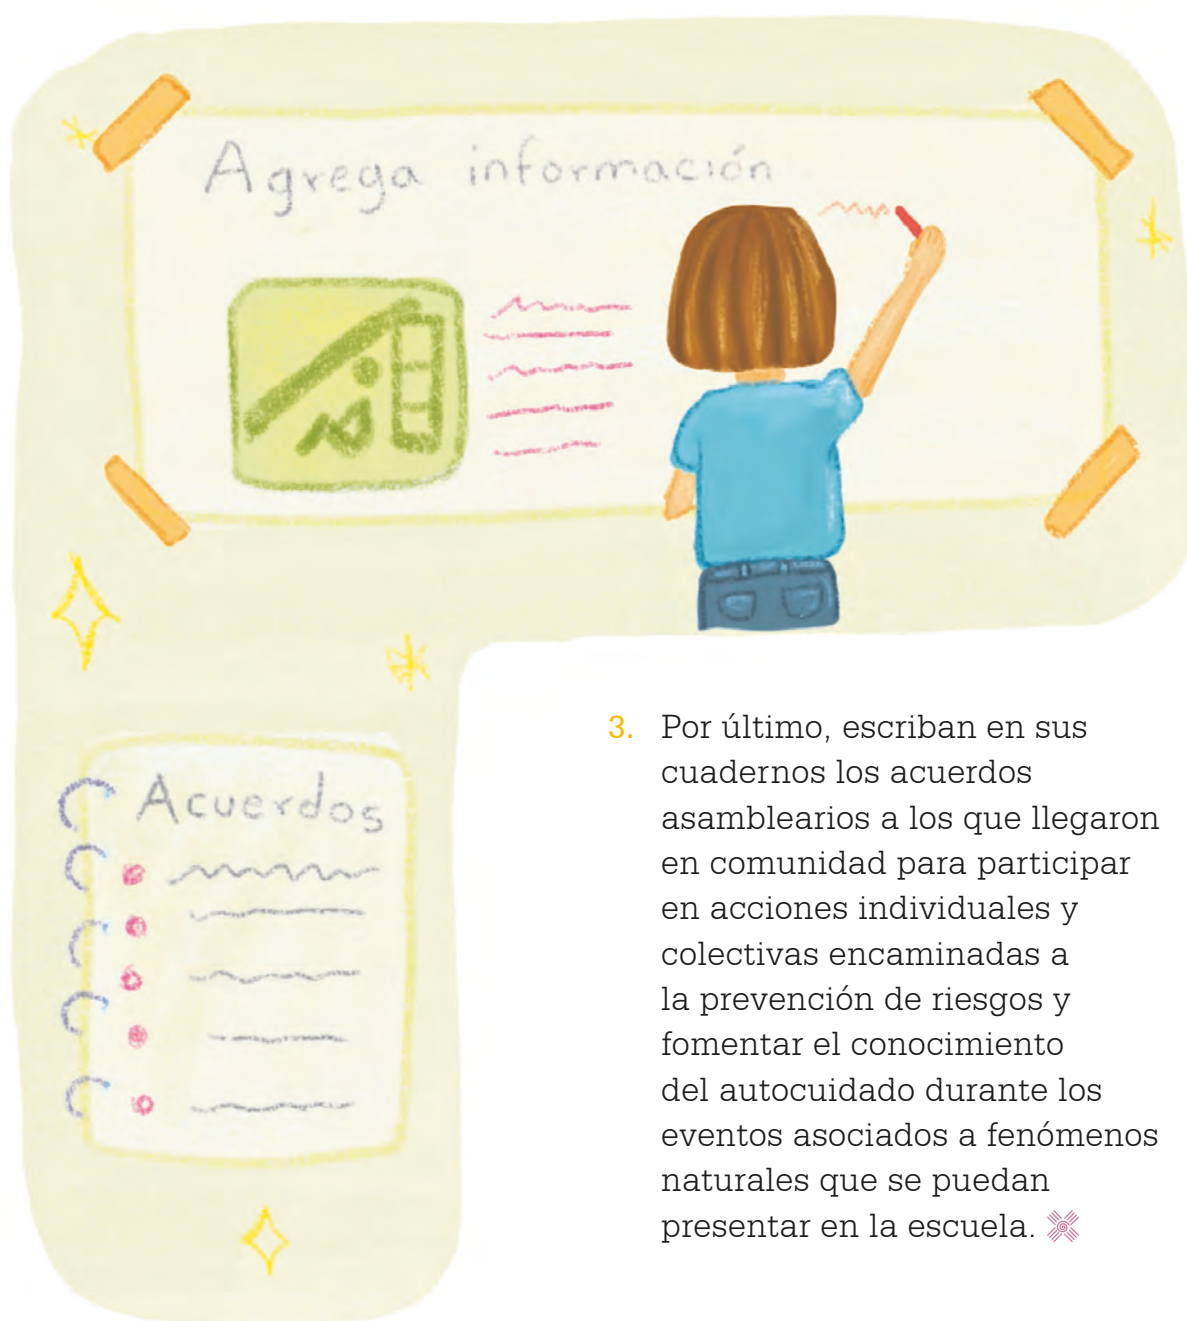 Agrega información
Acuerdos
3. Por último, escriban en sus
cuadernos los acuerdos
asamblearios a los que llegaron
en comunidad para participar
en acciones individuales y
colectivas encaminadas a
la prevención de riesgos y
fomentar el conocimiento
del autocuidado durante los
eventos asociados a fenómenos
naturales que se puedan
presentar en la escuela.